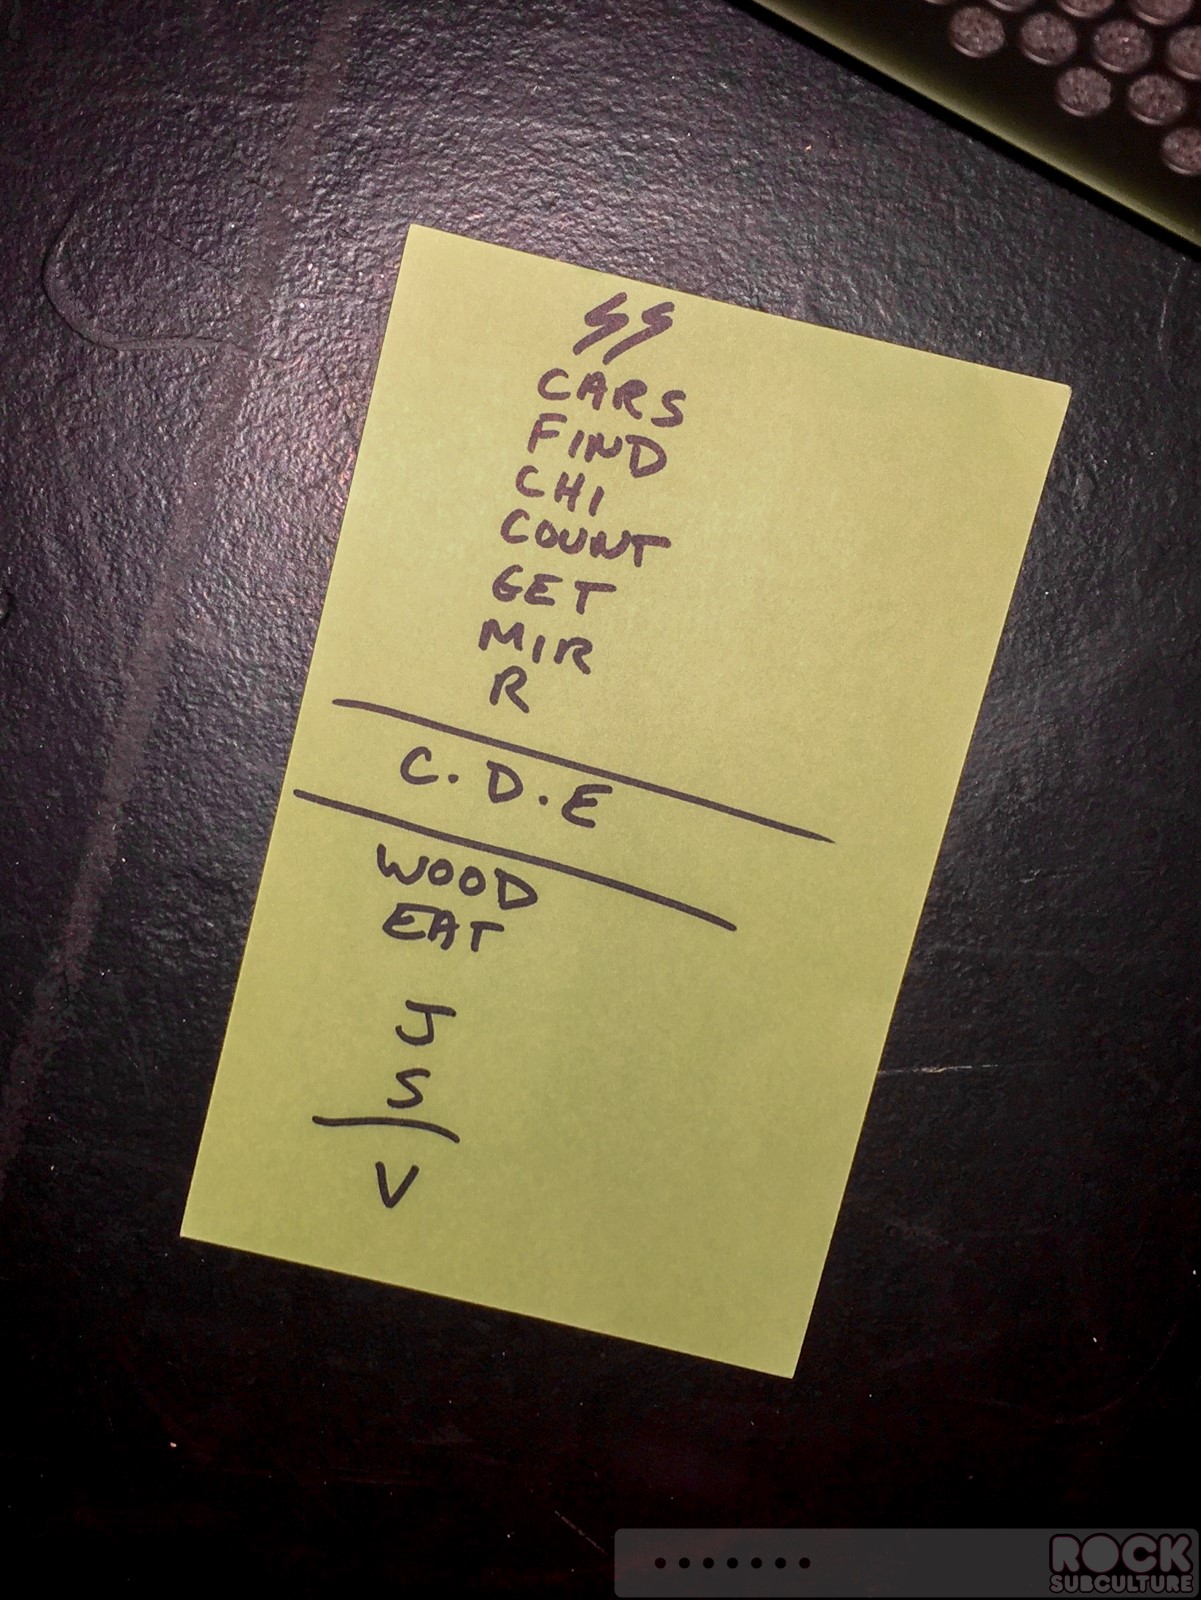 SS
CARS
FIND
CHI
COUNT
GET
MIR
R
C.D.E
WOOD
EAT
J
S
V
ROCK
SUBCULTURE